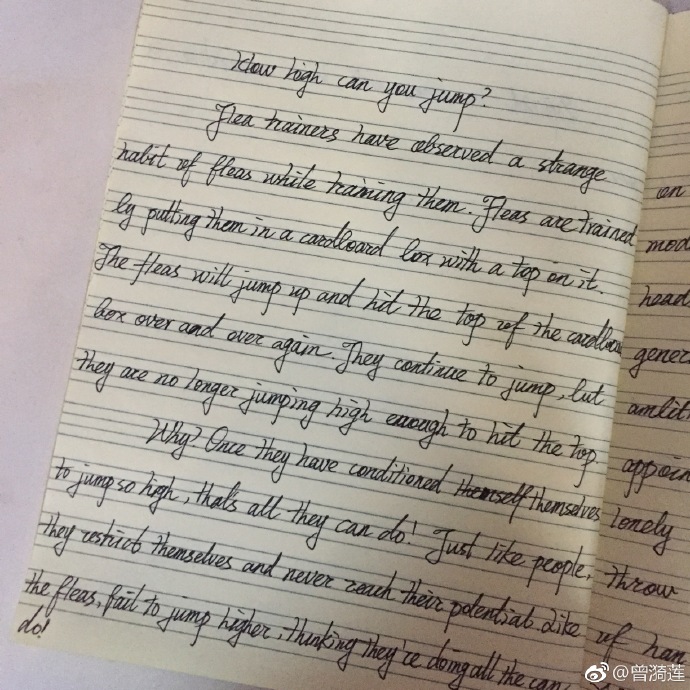 How high can you jump?
Flea trainers have observed a strange
habit of fleas while training them. Fleas are trained
by putting them in a cardboard box with a top on it.
The fleas will jump up and hit the top of the cardboard
box over and over again. They continue to jump, but
they are no longer jumping high enough to hit the top.
Why? Once they have conditioned themself themselves
to jump so high, thats all they can do! Just like people,
they restrict themselves and never reach their potential. Like
the fleas, fail to jump higher, thinking they're doing all the can
do!
on
mod
head
gener
ambiti
appoin
lonely
throw
of han
@曾漪莲